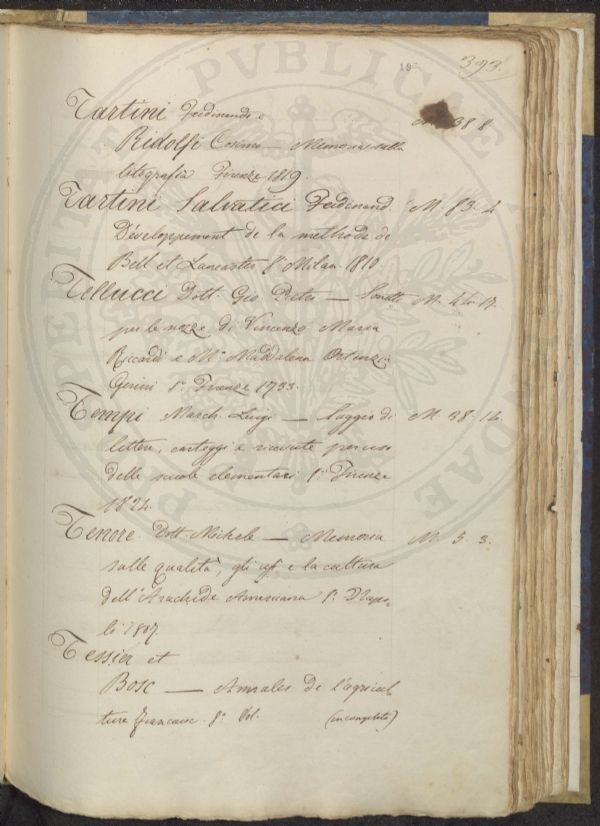 19
393.
Tartini Ferdinando e 38. 8
Ridolfi Cosimo — Memoria sulla
litografia Firenze 1819.
Tartini Salvatici Ferdinand M. 83. 4
Développement de la methode de
Bell et Lancaster 8° Milan 1810
Tellucci Dott. Gio Pietro — Sonetti M. 17.
per le nozze di Vincenzo Maria
Riccardi e Mª Maddalena Ortenzia
Gerini 8° Firenze 1733.
Tempi March. Luigi — Saggio di M. 38. 14.
lettere, carteggi e ricevute per uso
delle scuole elementari 8° Firenze
1824.
Tenore Dott. Michele — Memoria M. 5. 3.
sulle qualità, gli usi e la cultura
dell'Arachide Americana 8° Napo-
li 1807.
Tessier et
Bosc — Annales de l'agricul
ture française 8° Vol. (incompleto)
PVBLICAE